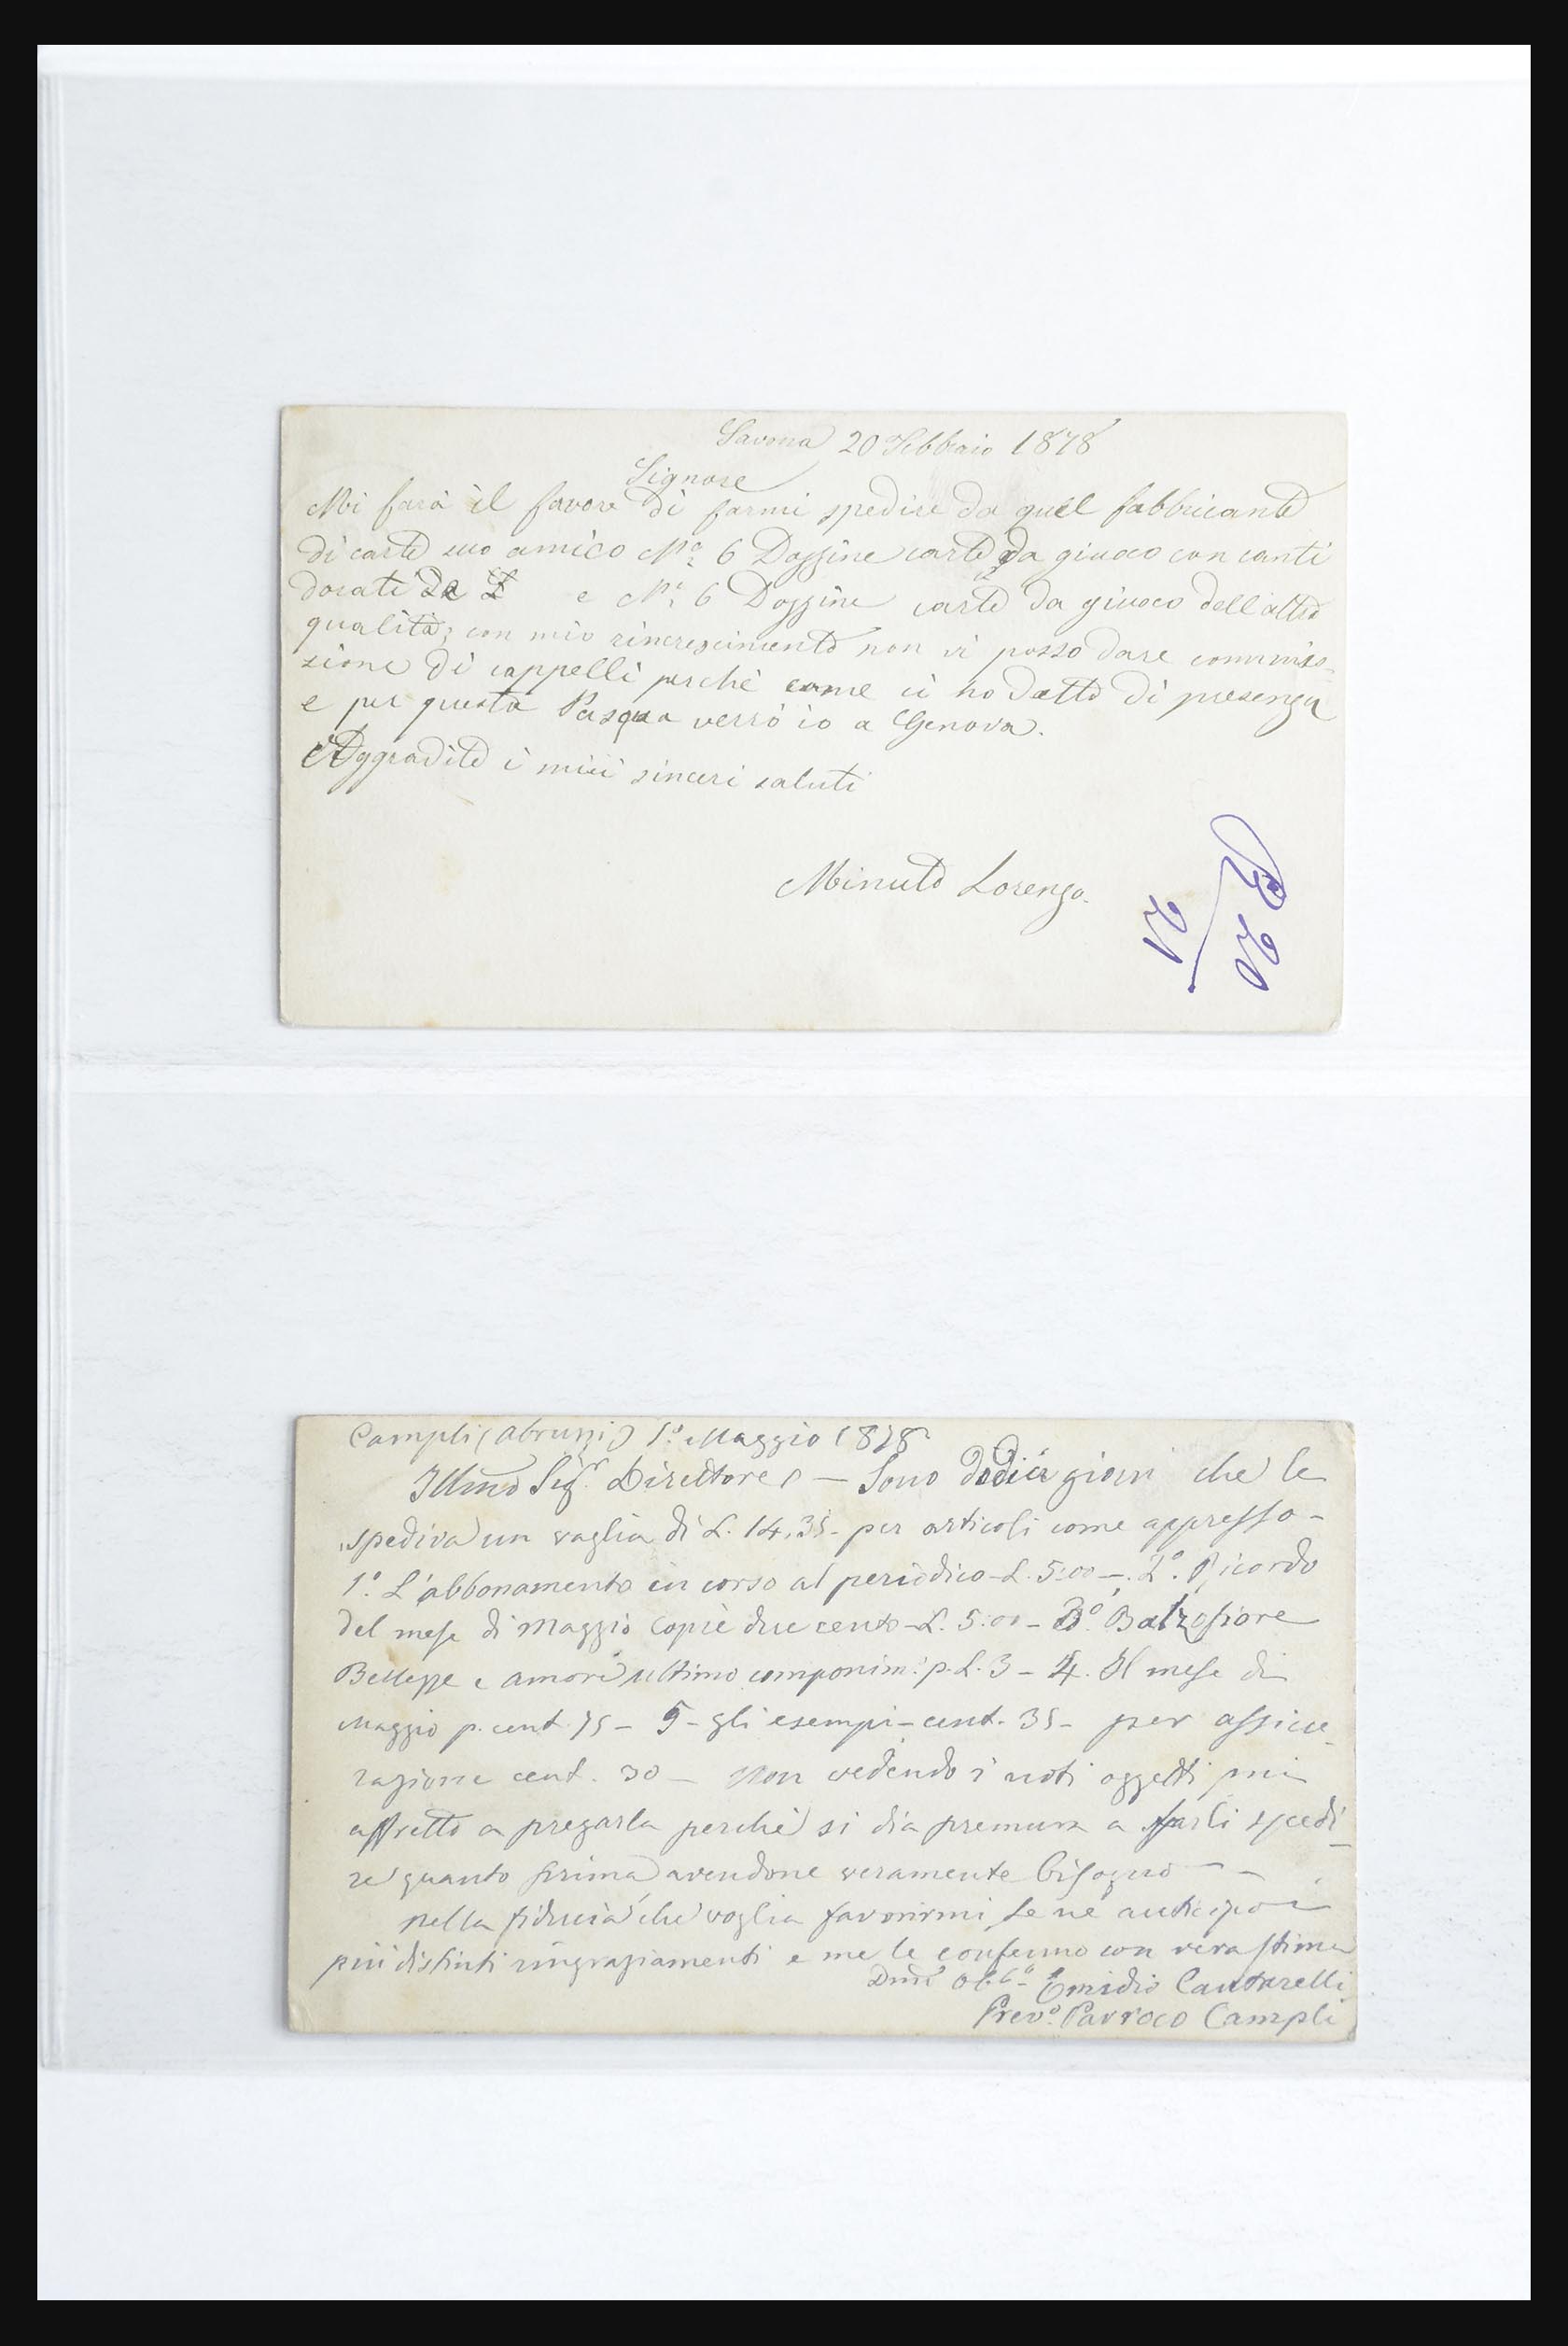 Savona 20 Febbraio 1878
Signore
Mi farà il favore di farmi spedire da quel fabbricante
di carte suo amico N.o 6 Dozzine carte da giuoco con canti
dorati e N.o 6 Dozzine carte da giuoco dell'altra
qualità; con mio rincrescimento non vi posso dare commis-
sione di cappelli perchè come ci ho detto di presenza
e per questa Pasqua verrò io a Genova.
Aggradite i miei sinceri saluti
Minuto Lorenzo.
Campli (Abruzzi) 1.o Maggio 1878
Illmo Sigr. Direttore — Sono dodici giorni che le
spediva un vaglia di L. 14.35 - per articoli come appresso -
1.o L'abbonamento in corso al periodico - L. 5:00 - 2.o Ricordo
del mese di Maggio copie due cento - L. 5:00 - 3.o Balzofiore
Bellezze e amori ultimo componim: p. L. 3 - 4. Il mese di
Maggio p. cent. 75 - 5 - gli esempi - cent. 35 - per assicu-
razione cent. 30 - Non vedendo i noti oggetti mi
affretto a pregarla perchè si dia premura a farli spedi-
re quanto prima avendone veramente bisogno - -
Nella fiducia che voglia favorirmi Le ne anticipo i
più distinti ringraziamenti e me le confermo con vera stima
obb.o Emidio Cantarelli
Prev.o Parroco Campli